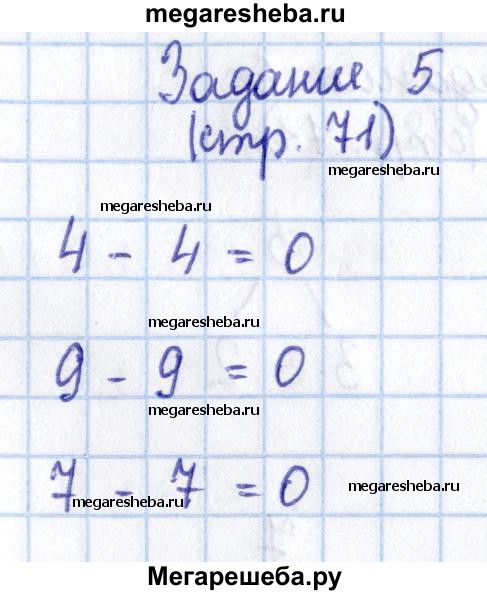 megaresheba.ru
Задание 5
(стр. 71)
megaresheba.ru
megaresheba.ru
4 - 4 = 0
megaresheba.ru
9 - 9 = 0
megaresheba.ru
7 - 7 = 0
megaresheba.ru
megaresheba.ru
Мегарешеба.ру